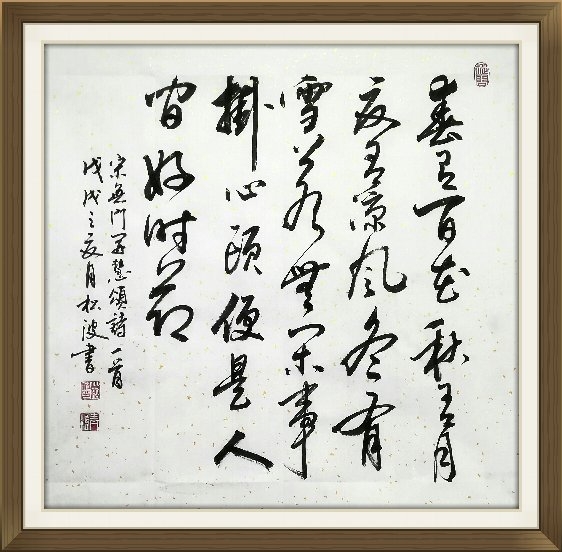 春有百花秋有月
夏有凉风冬有
雪若無闲事
掛心頭便是人
间好时節
宋無门开慧頌詩一首
戊戌之夏月松波書